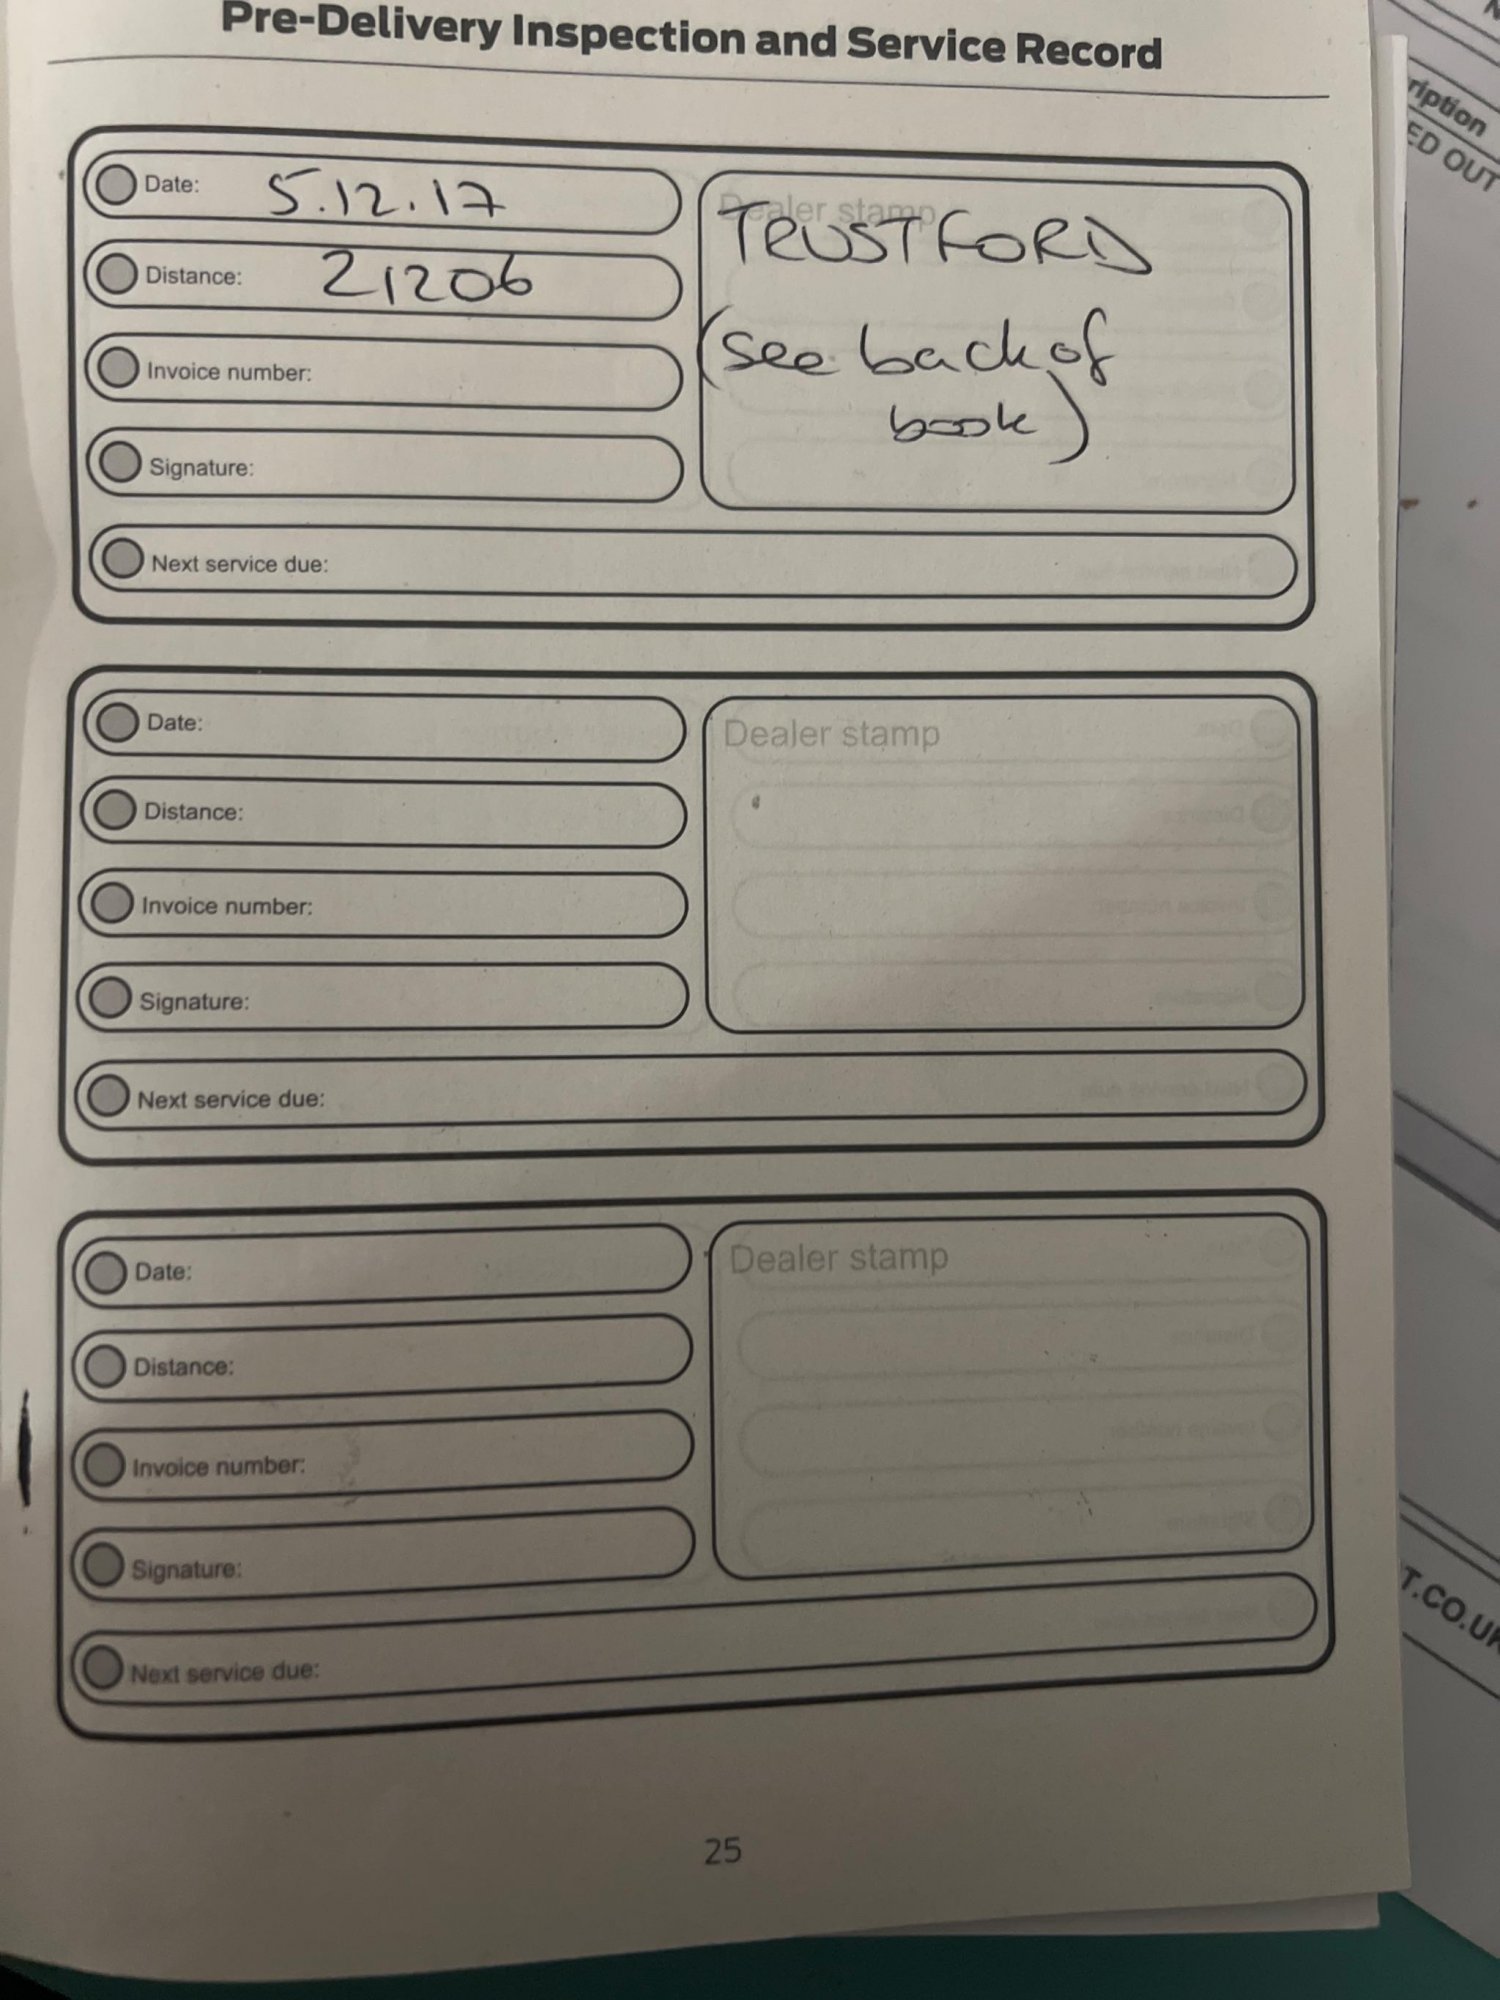 Pre-Delivery Inspection and Service Record
Date: 5.12.17
Distance: 21206
Invoice number:
Signature:
Next service due:
Dealer stamp
TRUSTFORD
(see back of
book)
Date:
Distance:
Invoice number:
Signature:
Next service due:
Dealer stamp
Date:
Distance:
Invoice number:
Signature:
Next service due:
Dealer stamp
25
ription
ED OUT
T.CO.UK